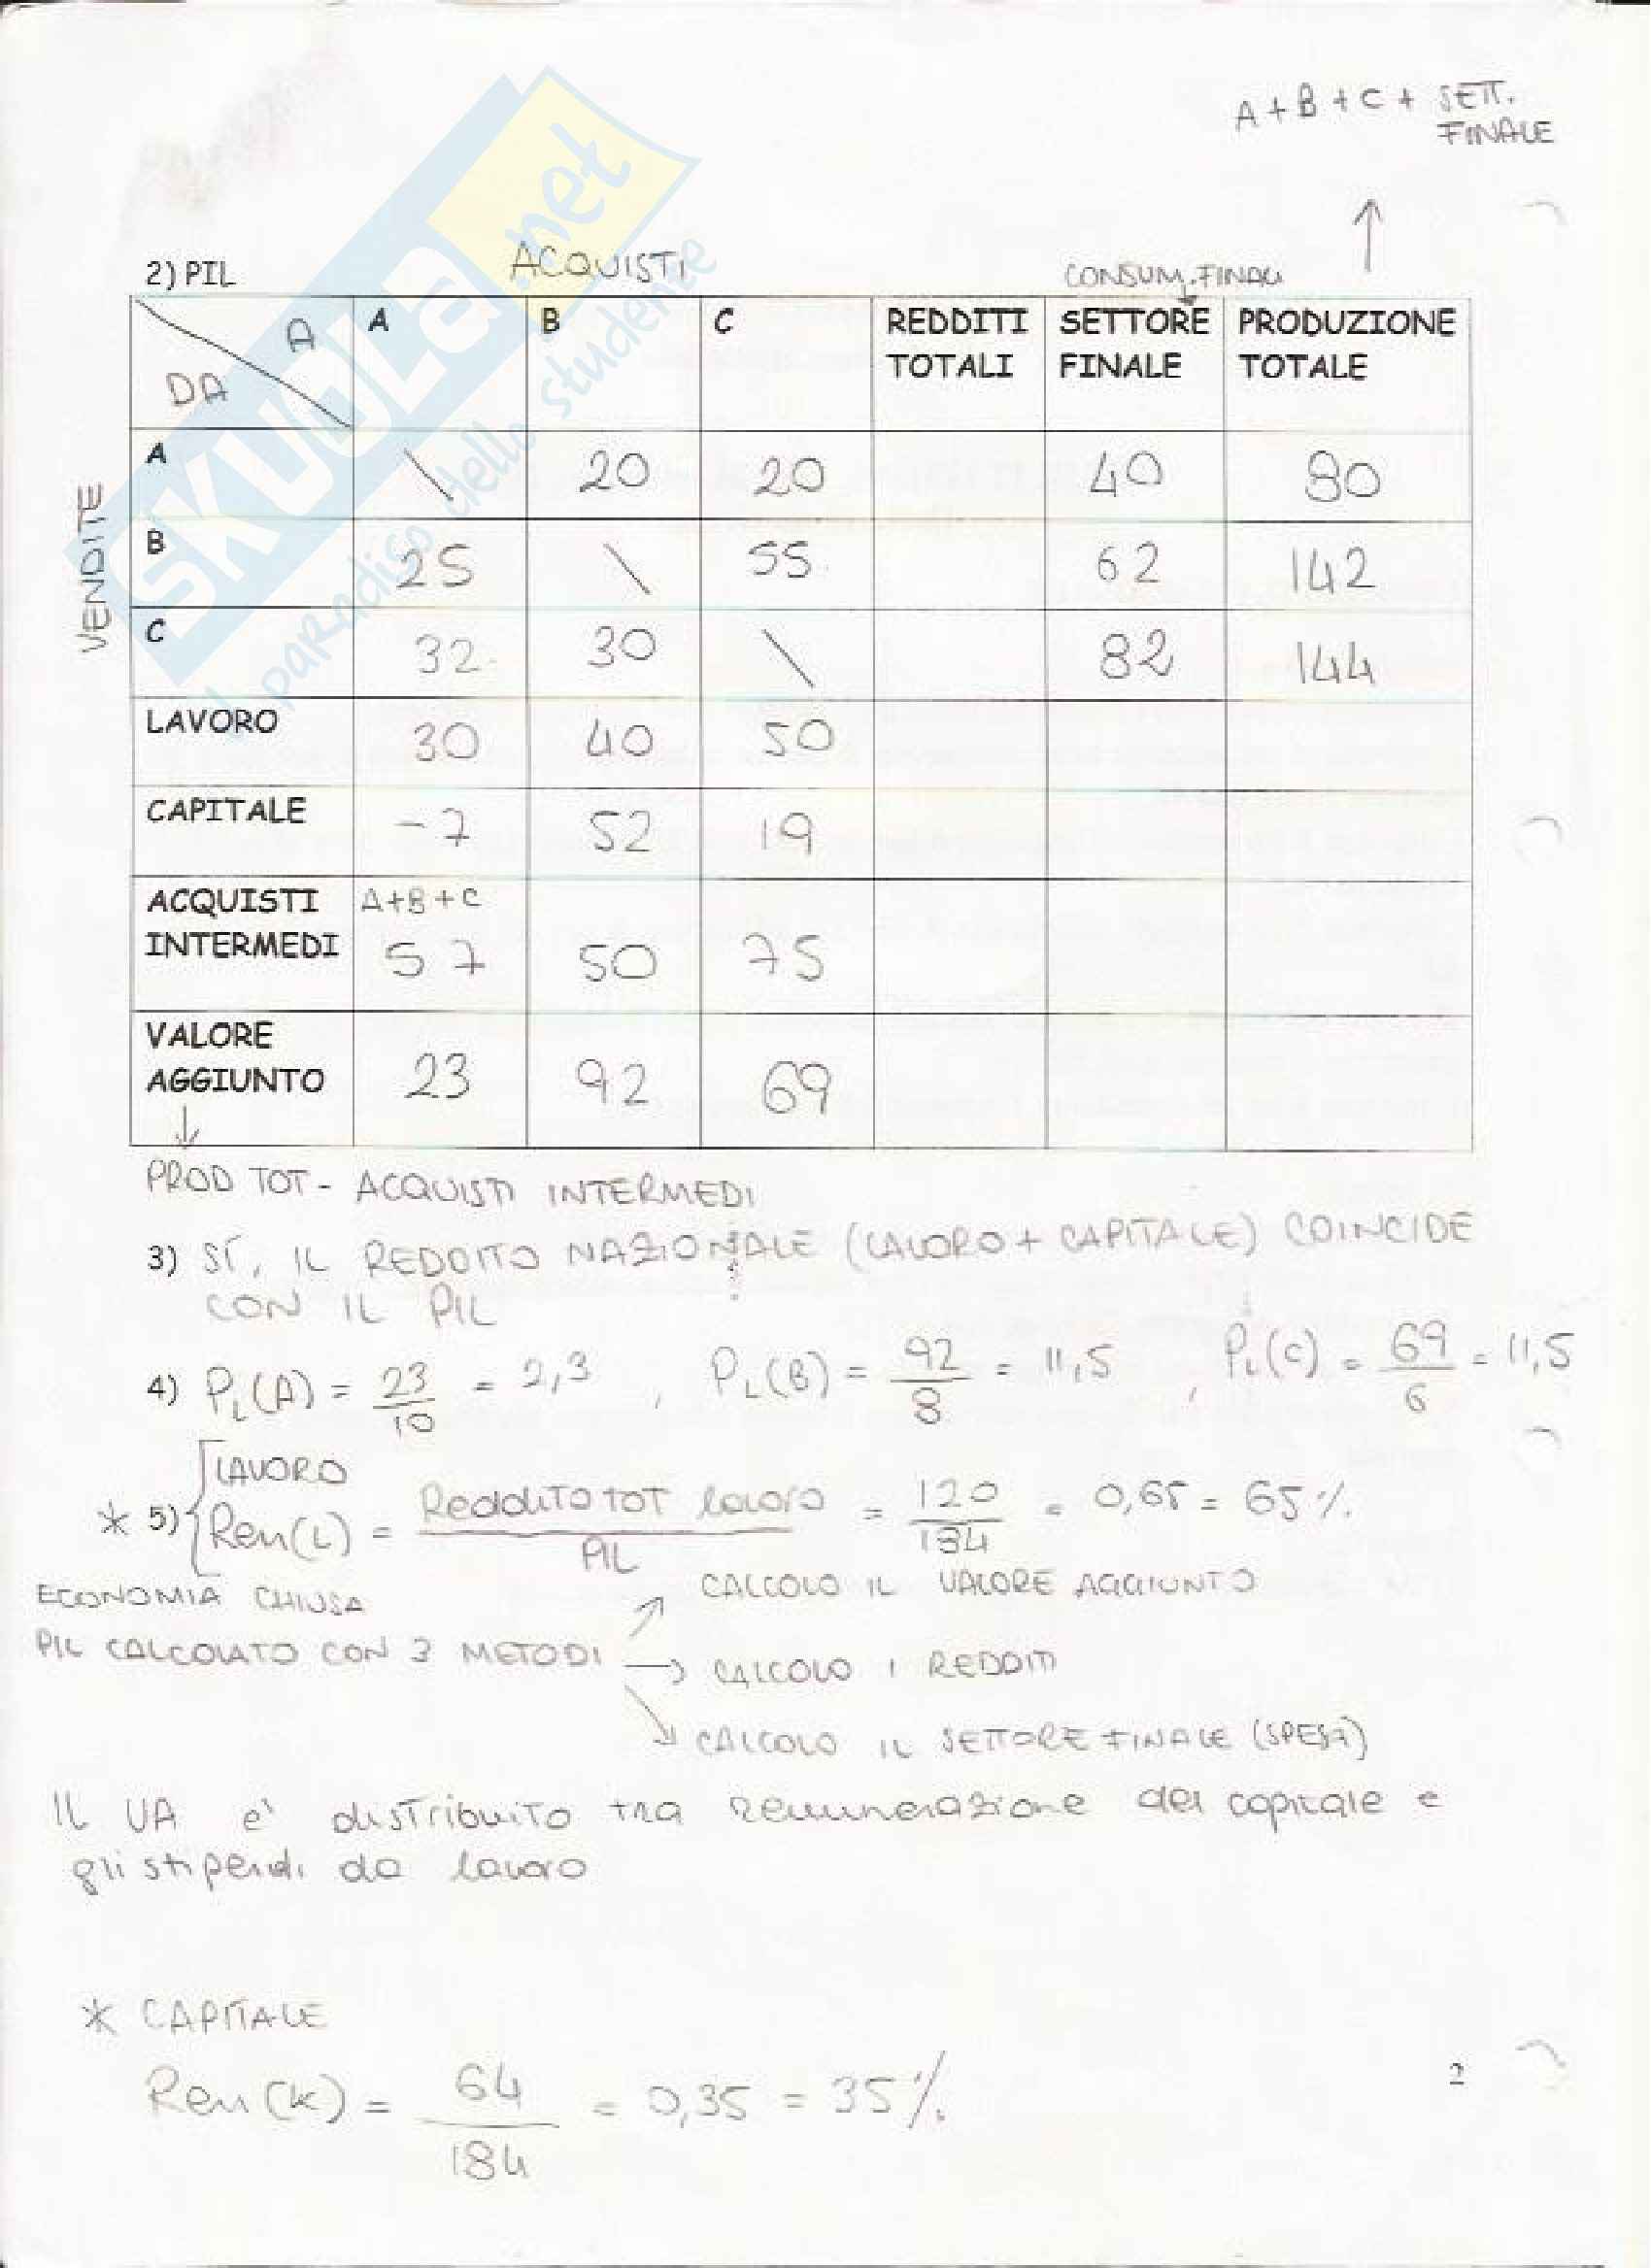 A + B + C + SETT.
FINALE
2) PIL ACQUISTI CONSUM. FINALI
A
DA
A B C REDDITI TOTALI SETTORE FINALE PRODUZIONE TOTALE
VENDITE
A \ 20 20 40 80
B 25 \ 55 62 142
C 32 30 \ 82 144
LAVORO 30 40 50
CAPITALE -7 52 19
ACQUISTI INTERMEDI A+B+C 57 50 75
VALORE AGGIUNTO 23 92 69
PROD TOT - ACQUISTI INTERMEDI
3) SÍ, IL REDDITO NAZIONALE (LAVORO + CAPITALE) COINCIDE
CON IL PIL
4) PL(A) = 23/10 = 2,3 , PL(B) = 92/8 = 11,5 , PL(C) = 69/6 = 11,5
LAVORO
* 5) Ren(L) = Reddito TOT lavoro / PIL = 120/184 = 0,65 = 65%
ECONOMIA CHIUSA
PIL CALCOLATO CON 3 METODI
→ CALCOLO IL VALORE AGGIUNTO
→ CALCOLO I REDDITI
→ CALCOLO IL SETTORE FINALE (SPESA)
IL VA e' distribuito tra remunerazione del capitale e
gli stipendi da lavoro
* CAPITALE
Ren (K) = 64/184 = 0,35 = 35%
2
SKUOLA.net
il paradiso dello studente